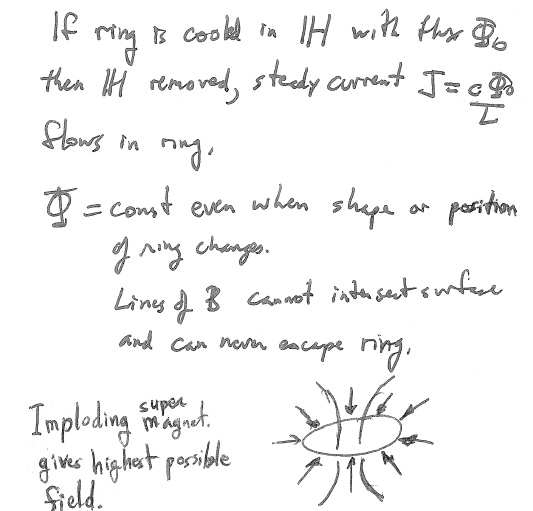 If ring is cooled in H with flux Φ₀
then H removed, steady current J = cΦ₀/L
flows in ring.
Φ = const even when shape or position
of ring changes.
Lines of B cannot intersect surface
and can never escape ring.
Imploding super magnet.
gives highest possible
field.